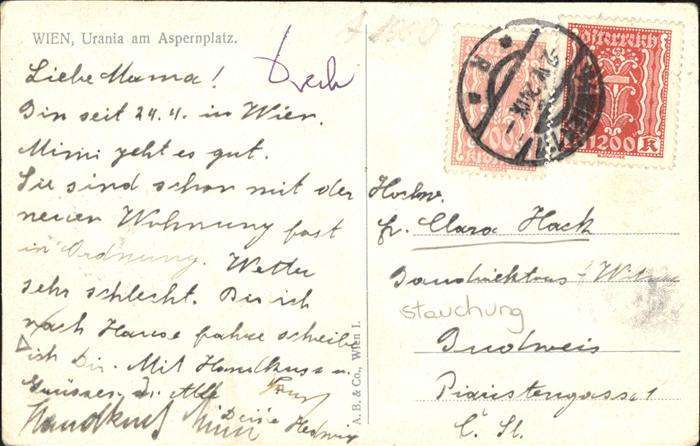 WIEN, Urania am Aspernplatz.
Liebe Mama!
Bin seit 24.4. in Wien.
Mimi geht es gut.
Sie sind schon mit der
neuen Wohnung fast
in Ordnung. Wetter
sehr schlecht. Bis ich
nach Hause fahre schreibe
ich Dir. Mit Handkuss u.
Grüssen an Alle
Deine Hedwig
Handkuss Mimi
A. B. & Co., Wien I.
österreich
1200 K
WIEN
Hochw.
Fr. Clara Hack
Baudirektors-Witwe
stauchung
Budweis
Piaristengasse 1
Č. Sl.